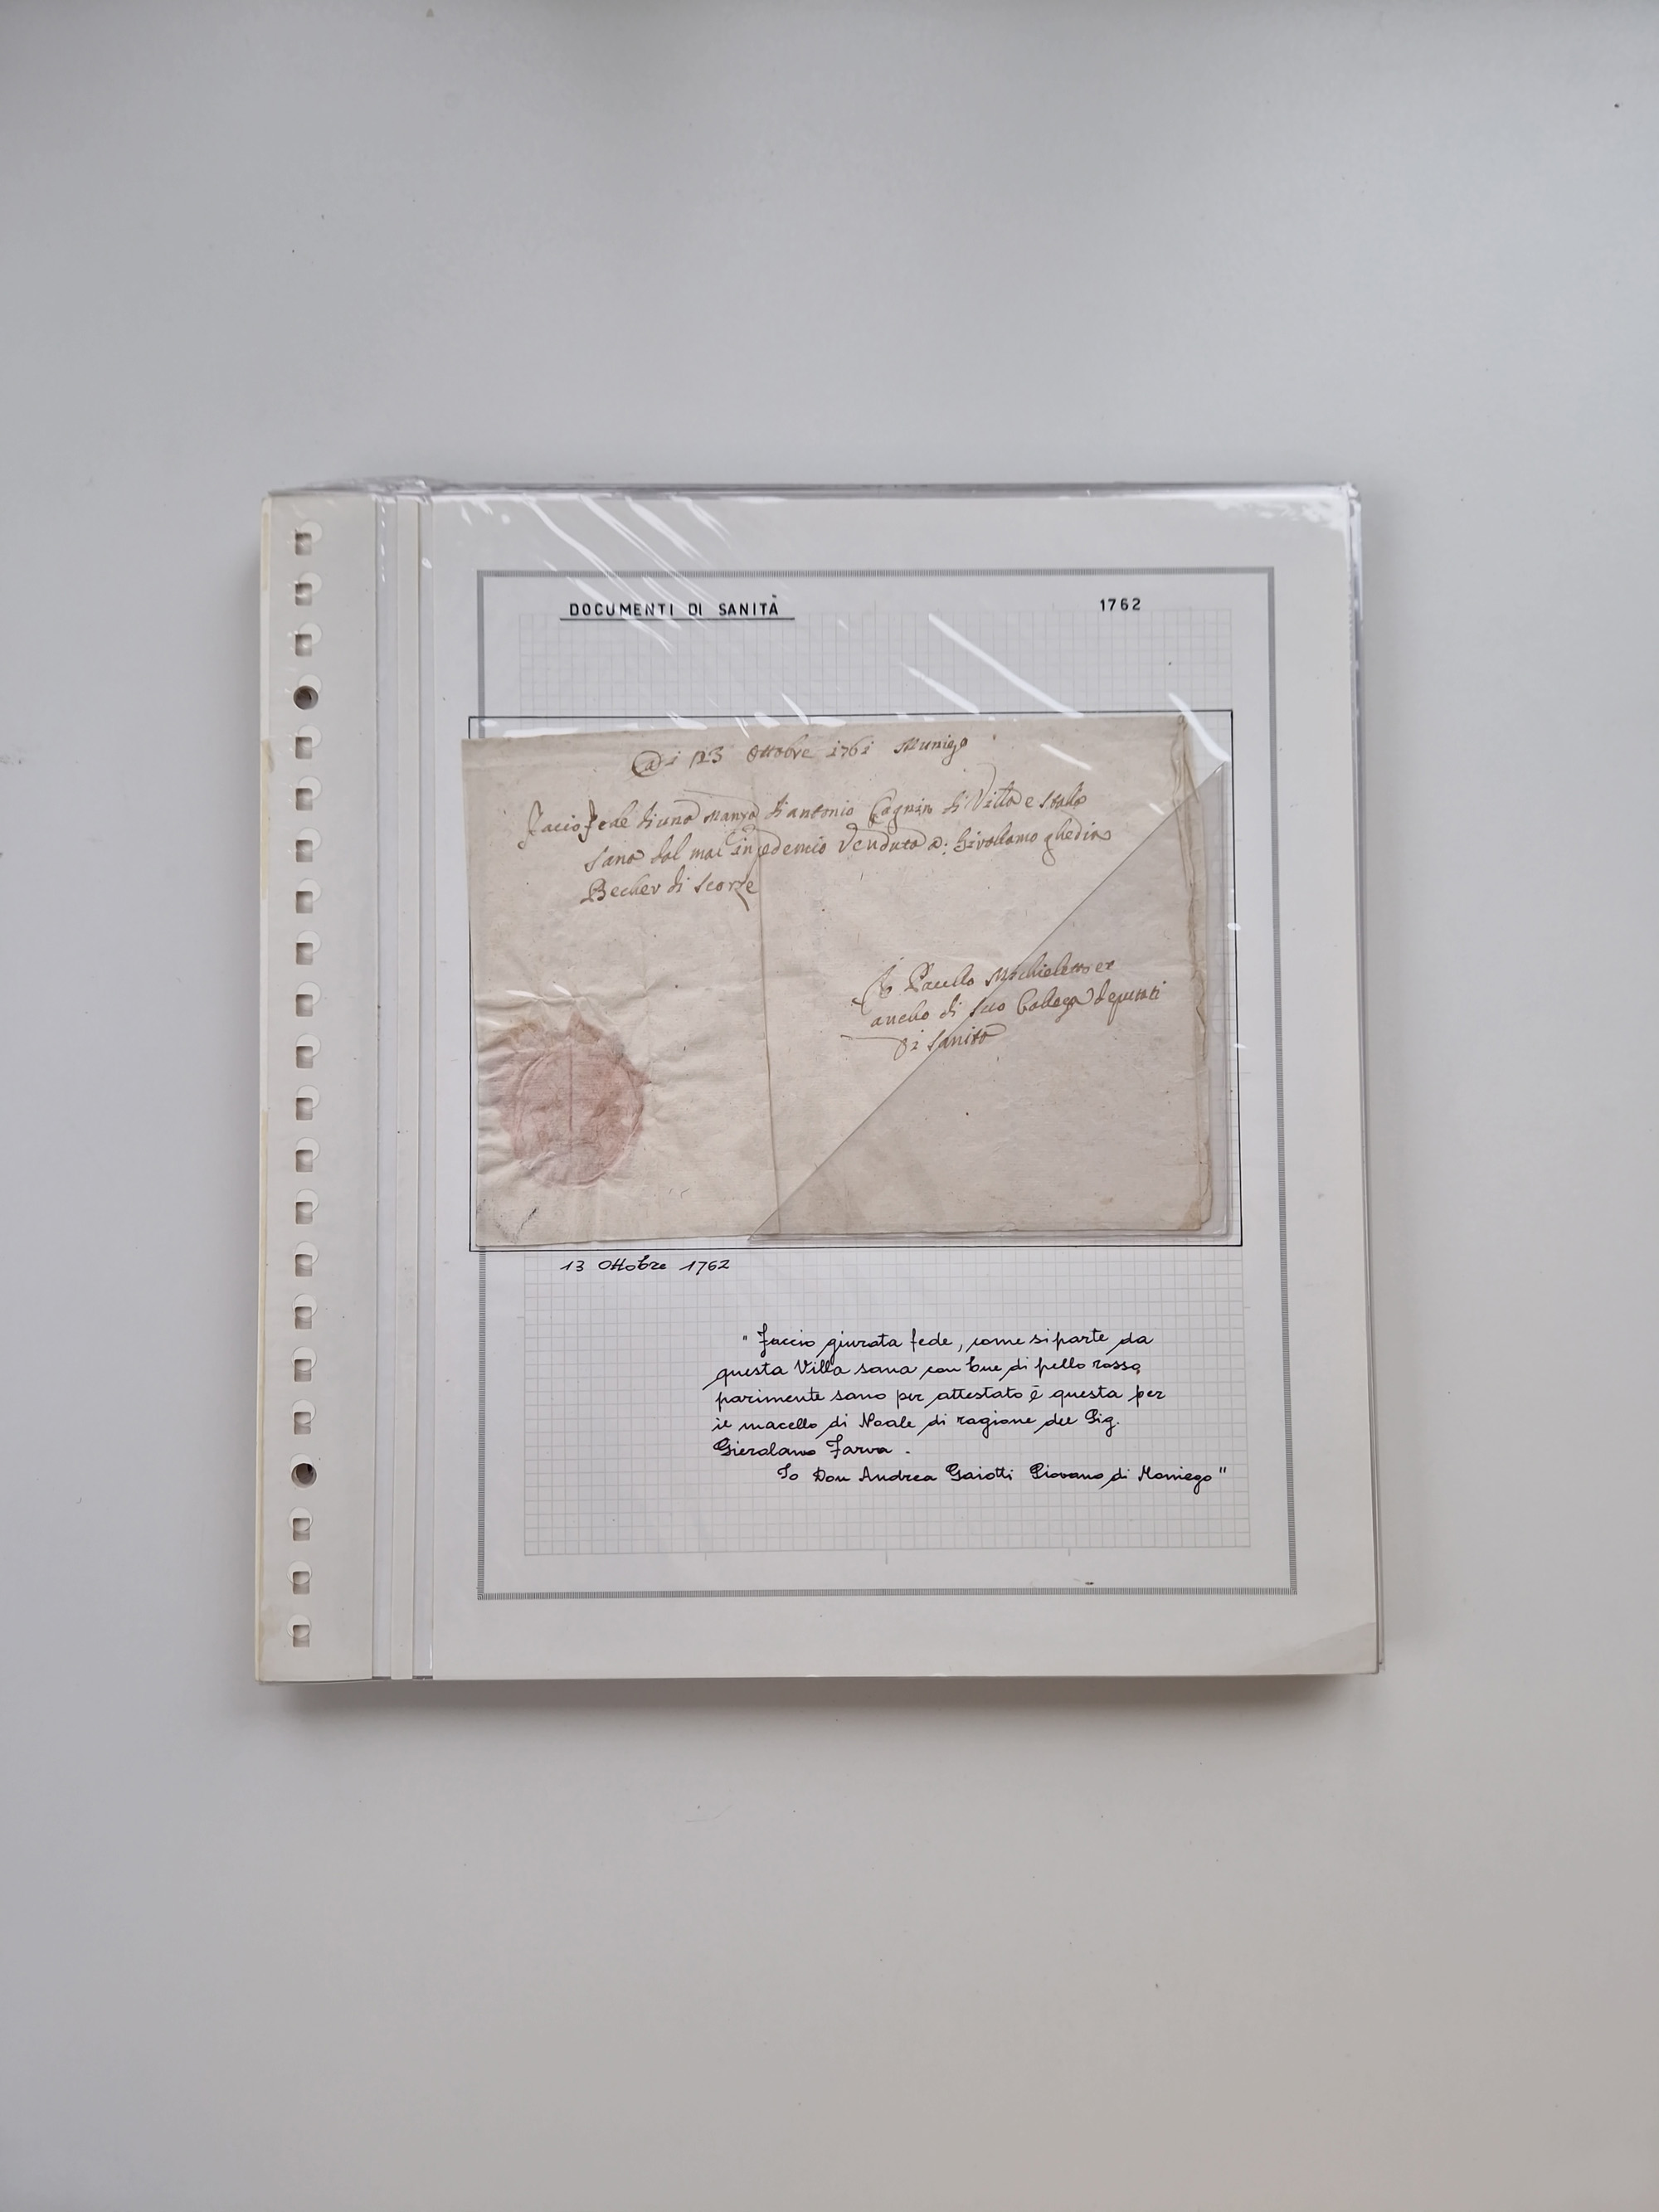 DOCUMENTI DI SANITÀ 1762
Ottobre 1761 Munigo
Facio fede di una Manza di antonio Cagnin di Villa e Stalo
Sana dal mal Venduta a: Girollamo ghedin
Becher di Scorze
Io Paullo Michieletto et
di suo Collega deputati
di Sanita
13 Ottobre 1762
" Faccio giurata fede, come si parte da
questa Villa sana con bue di pello rosso,
parimente sano per attestato è questa per
il macello di Noale di ragione del Sig.
Gierolamo Farva .
Io Don Andrea Gaiotti Piovano di Moniego "